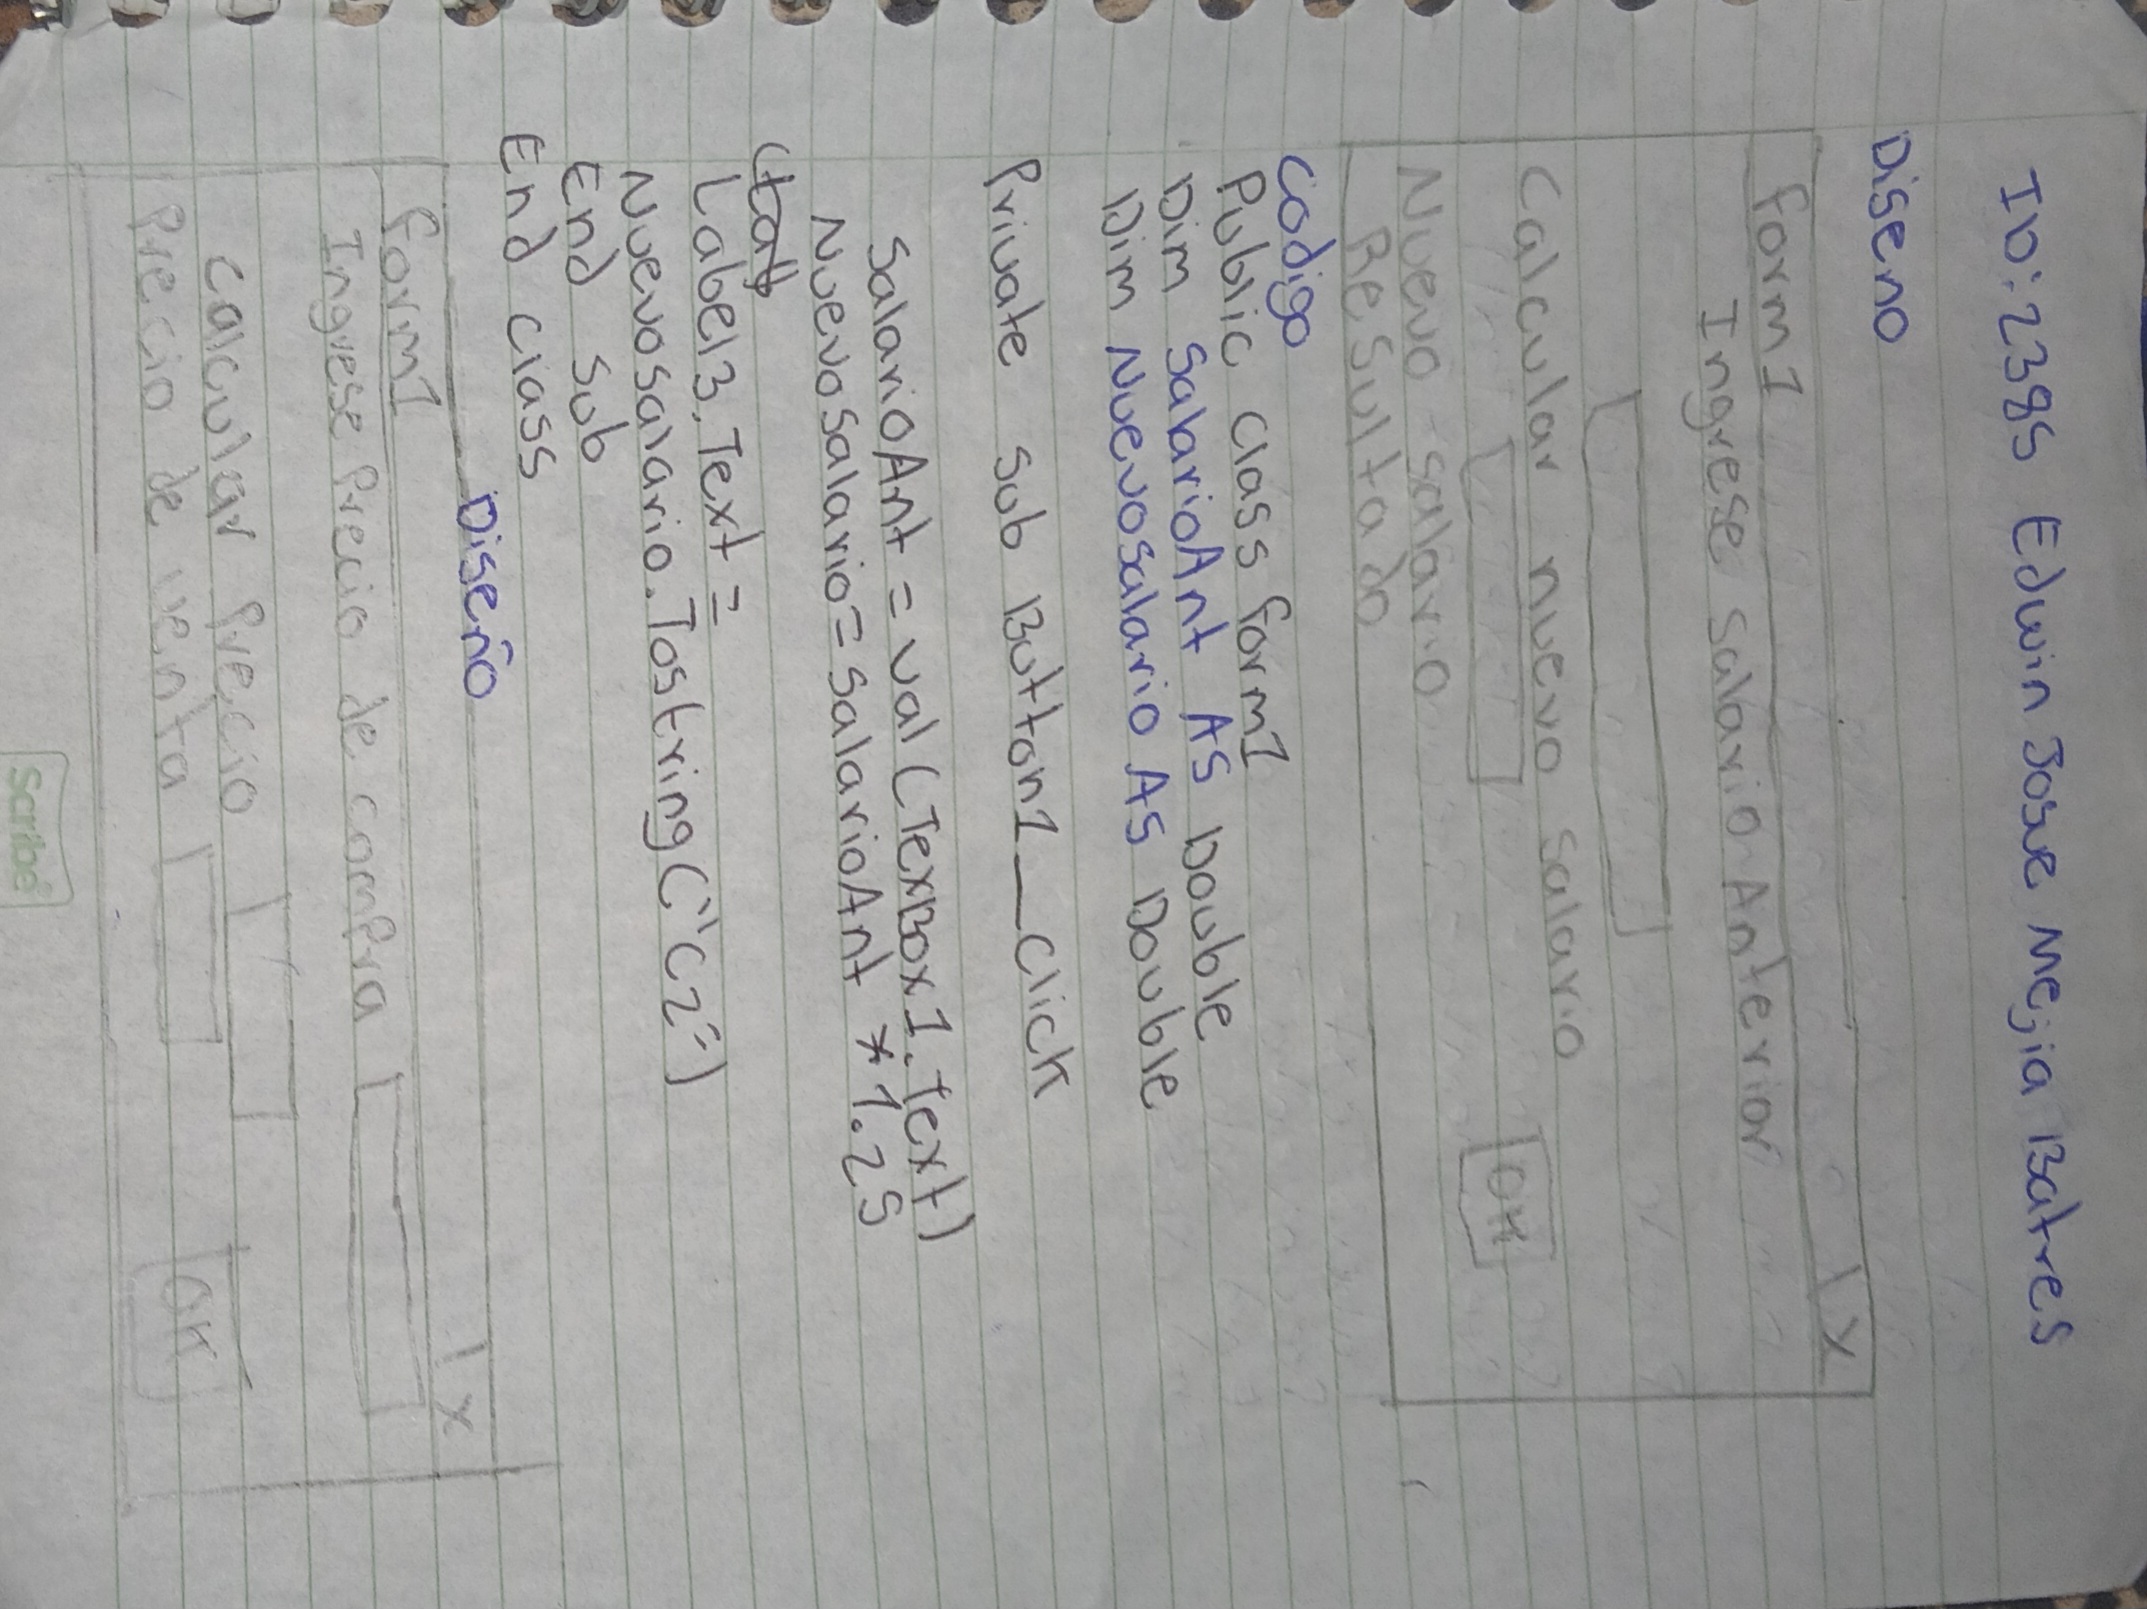 ID:2385 Edwin Josue Mejia Batres
Diseno
form1 X
Ingrese salario Anterior
Calcular nuevo salario
OK
Nuevo salario
Resultado
codigo
Public class form1
Dim salarioAnt As Double
Dim Nuevosalario As Double
Private sub Button1_click
salarioAnt = val(TexBox1.Text)
Nuevosalario=salarioAnt * 1.25
Label3.Text =
Nuevosalario.Tostring("C2")
End sub
End class
Diseño
form1 X
Ingrese Precio de compra
calcular Precio
Precio de venta
OK
Scribe